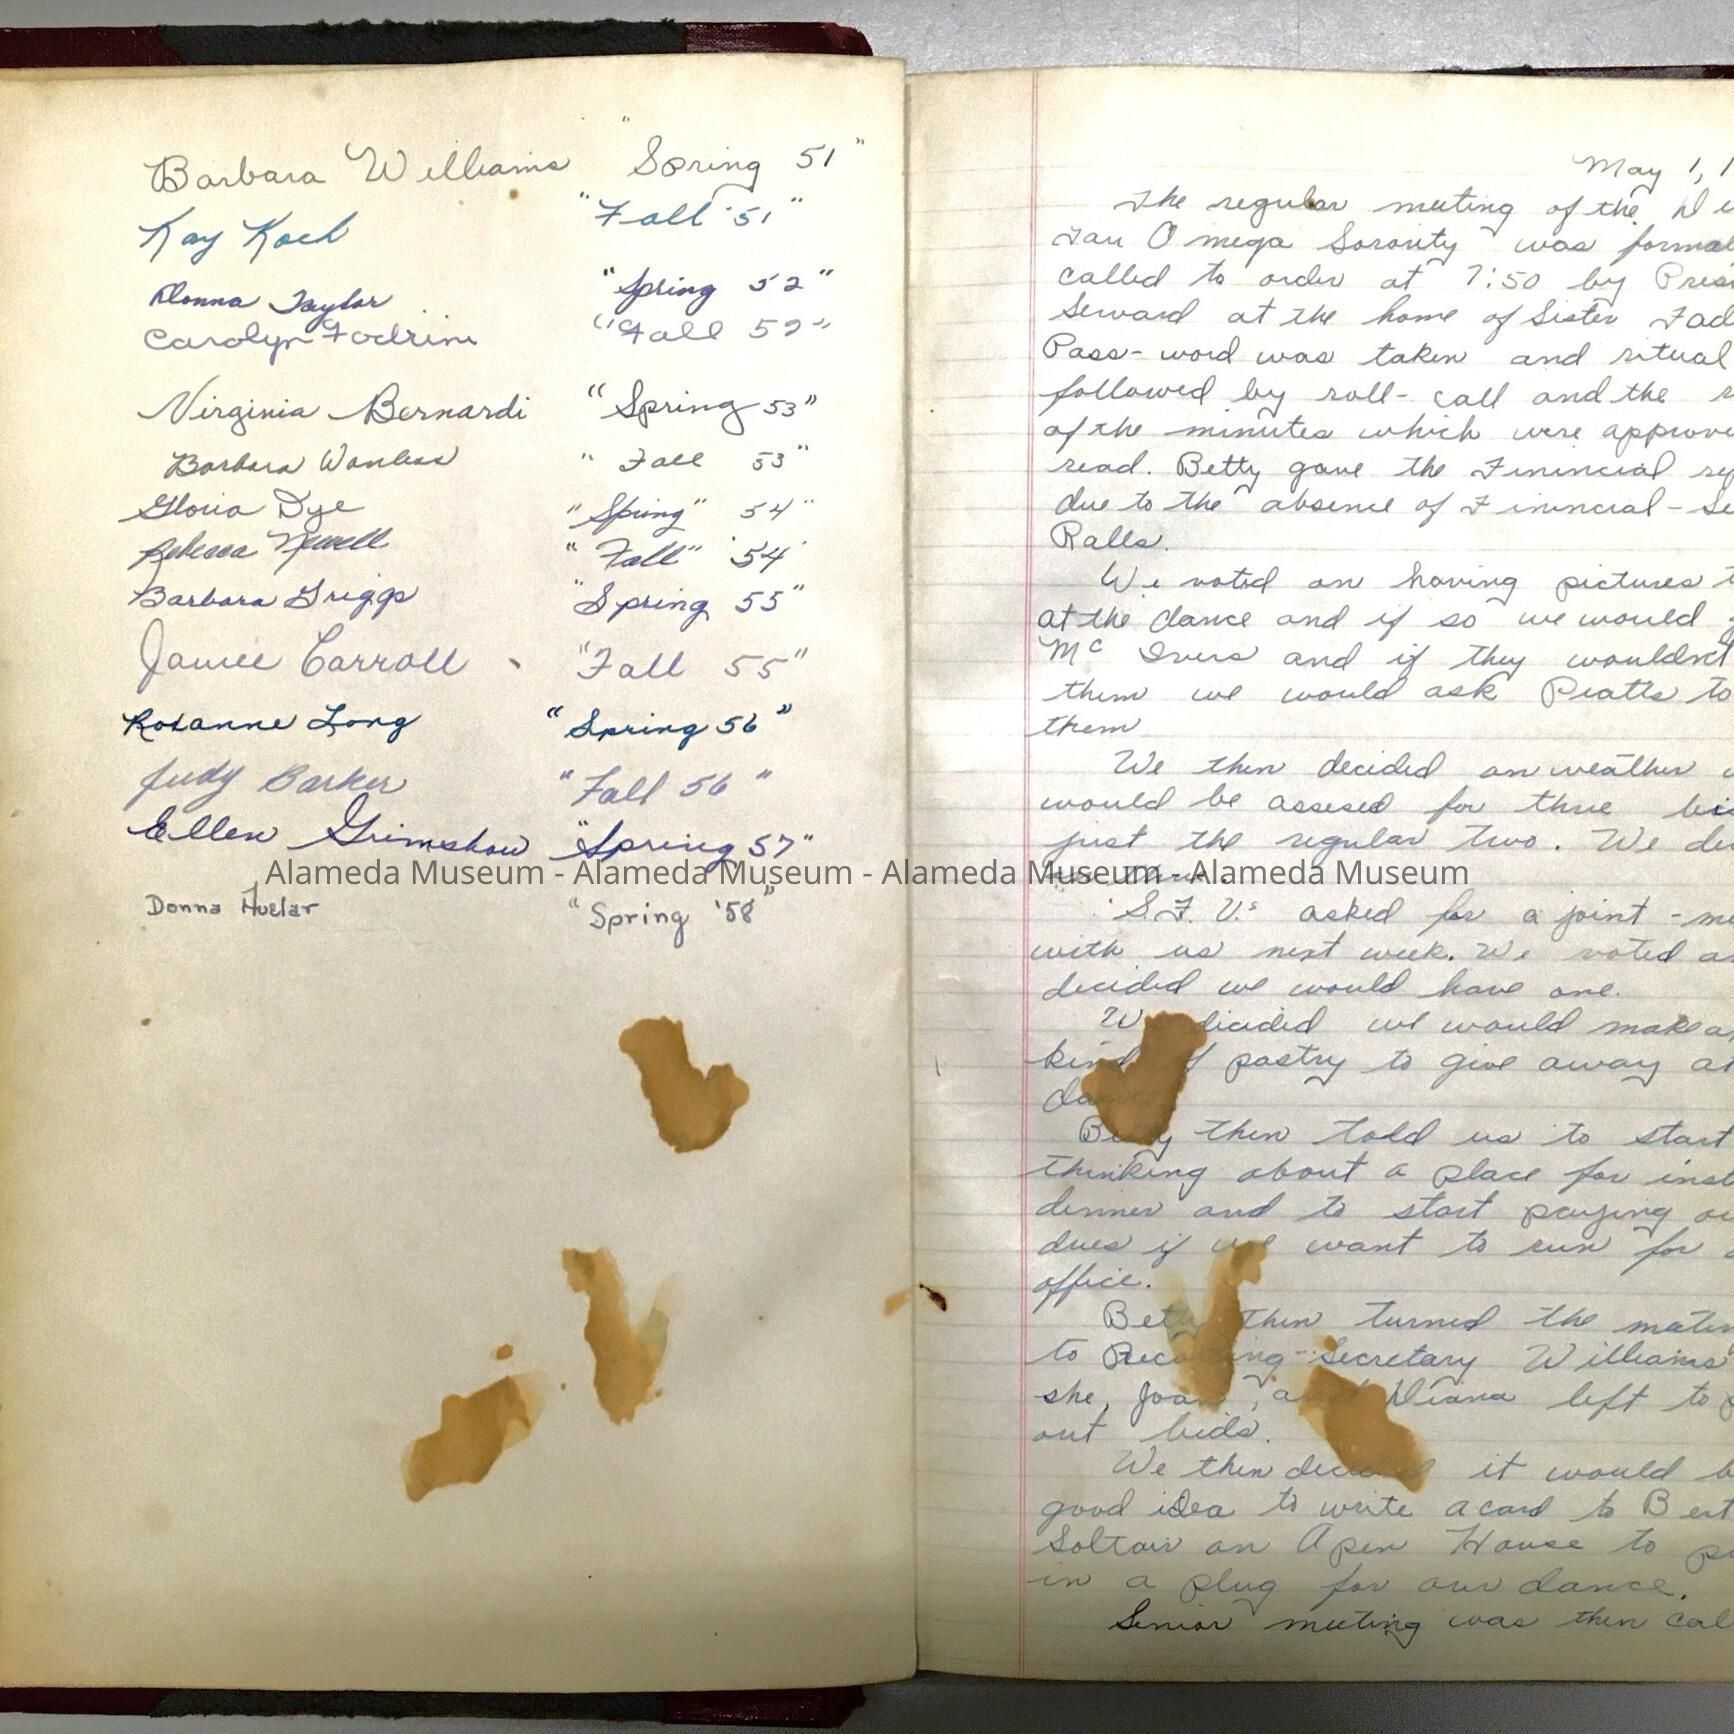 Barbara Williams "Spring 51"
Kay Koch "Fall '51"
Donna Taylor "Spring 52"
Carolyn Fodrini "Fall 52"
Virginia Bernardi "Spring 53"
Barbara Wanless "Fall 53"
Gloria Dye "Spring" 54"
Rebecca Newell "Fall" '54'
Barbara Griggs "Spring 55"
Janice Carroll "Fall 55"
Roxanne Long "Spring 56"
Judy Barker "Fall 56"
Ellen Grimshaw "Spring 57"
Donna Huelar "Spring '58"
May 1, 1
The regular meeting of the
Tau Omega Sorority was formal
called to order at 7:50 by Pres
Seward at the home of Sister Fad
Pass-word was taken and ritual
followed by roll-call and the r
of the minutes which were approve
read. Betty gave the Finincial rep
due to the absence of Finincial-Se
Ralls.
We voted on having pictures t
at the dance and if so we would
Mc Ivers and if they wouldn't
them we would ask Piatts to
them
We then decided on weather w
would be assesed for three bid
just the regular two. We de
S.F.V.s asked for a joint-me
with us next week. We voted an
decided we would have one.
We decided we would make a
kind of pastry to give away at
da
Betty then told us to start
thinking about a place for inst
dinner and to start paying ou
dues if we want to run for
office.
Betty then turned the meetin
to Recording-Secretary Williams
she, Joan, and Diana left to
out bids.
We then decided it would b
good idea to write a card to Bert
Soltair on Open House to pu
in a plug for our dance.
Senior meeting was then cal
Alameda Museum - Alameda Museum - Alameda Museum - Alameda Museum